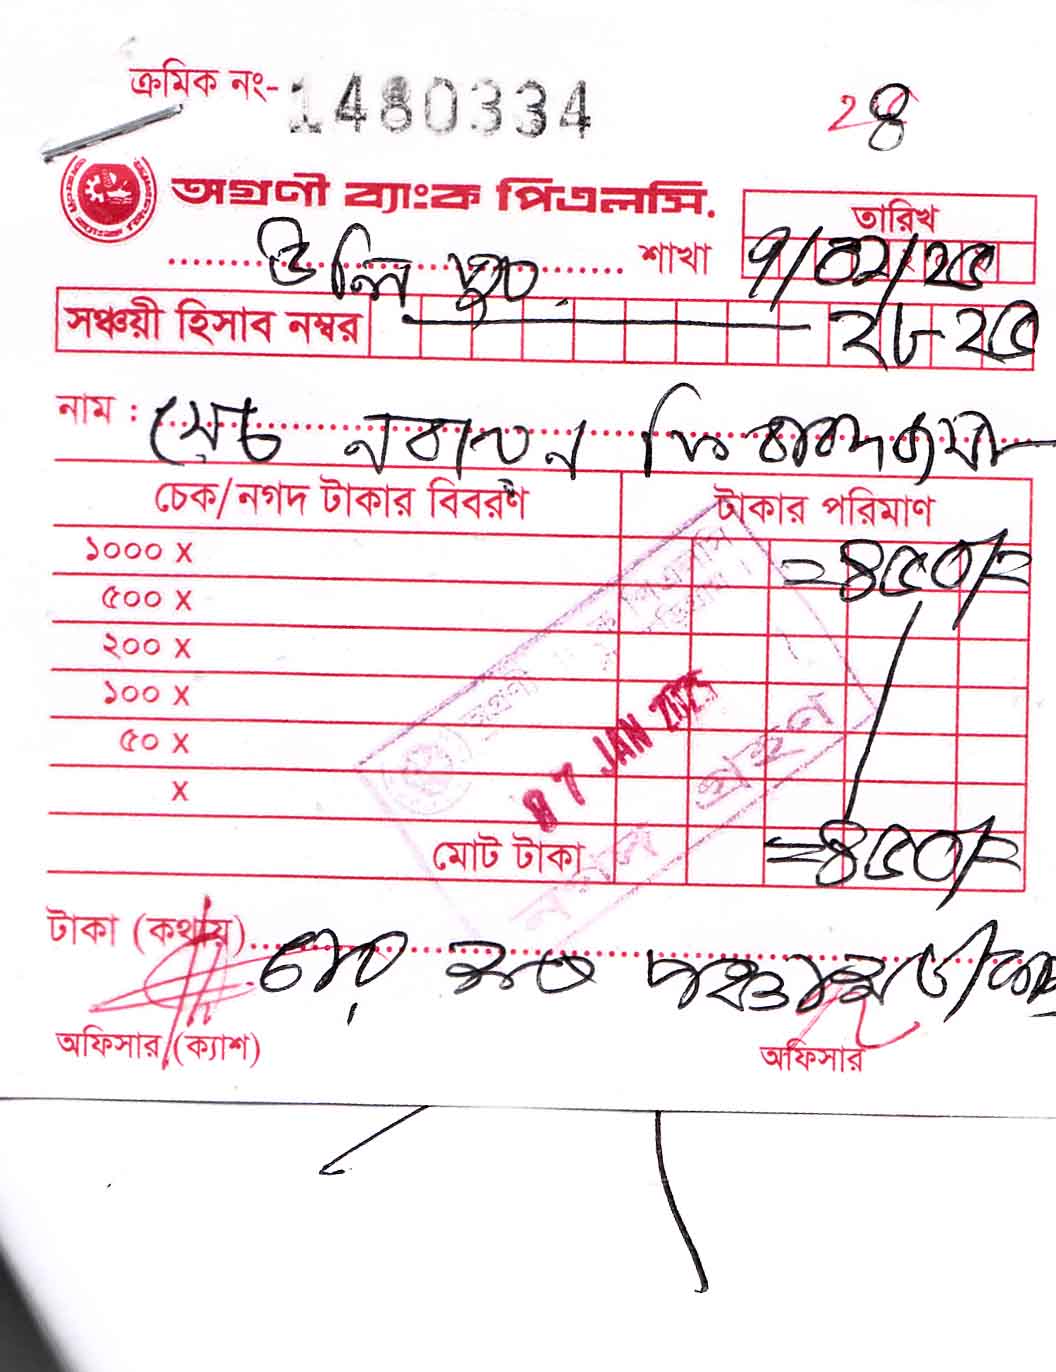 ক্রমিক নং- 1480334
28
অগ্রণী ব্যাংক পিএলসি.
উলিপুর শাখা
তারিখ
৭/০১/২৫
সঞ্চয়ী হিসাব নম্বর ২৮২৫
নাম :
চেক/নগদ টাকার বিবরণ টাকার পরিমাণ
১০০০ X =৪৫০/=
৫০০ X
২০০ X
১০০ X
৫০ X
X
07 JAN 2025
নগদ গ্রহণ
মোট টাকা =৪৫০/=
টাকা (কথায়) চার শত পঞ্চাশ টাকা
অফিসার (ক্যাশ) অফিসার